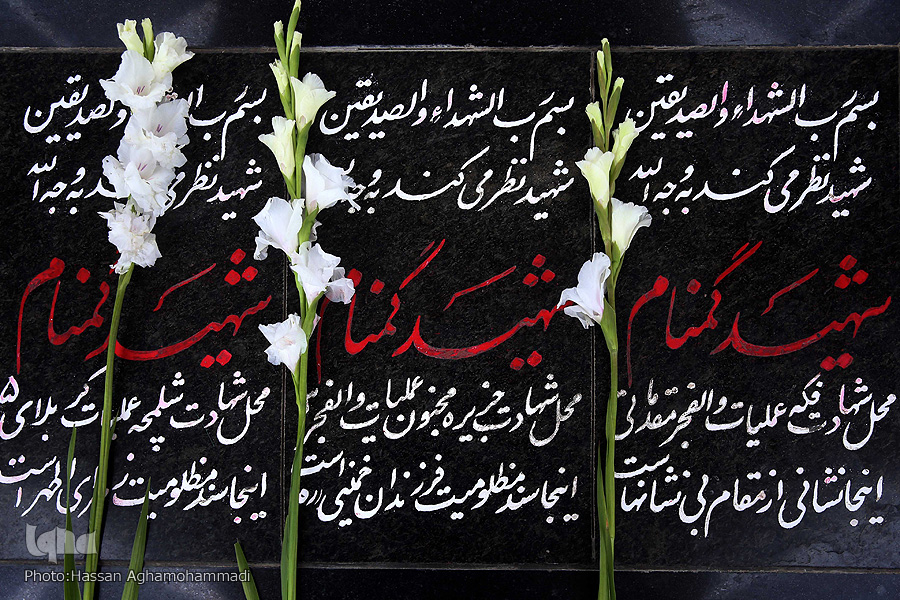 بسم رب الشهداء والصدیقین
شهید نظر می کند به وجه الله
شهید گمنام
محل شهادت فکه عملیات والفجر مقدماتی
اینجا نشانی از مقام بی نشانهاست
بسم رب الشهداء والصدیقین
شهید نظر می کند به وجه
شهید گمنام
محل شهادت جزیره مجنون عملیات والفجر
اینجا سند مظلومیت فرزندان خمینی (ره) است
بسم رب ال والصدیقین
شهید نظر کند به وجه الله
شهید گمنام
محل شهادت شلمچه عملیات کربلای ۵
اینجا سند مظلومیت الزهرا است
iqna
Photo:Hassan Aghamohammadi